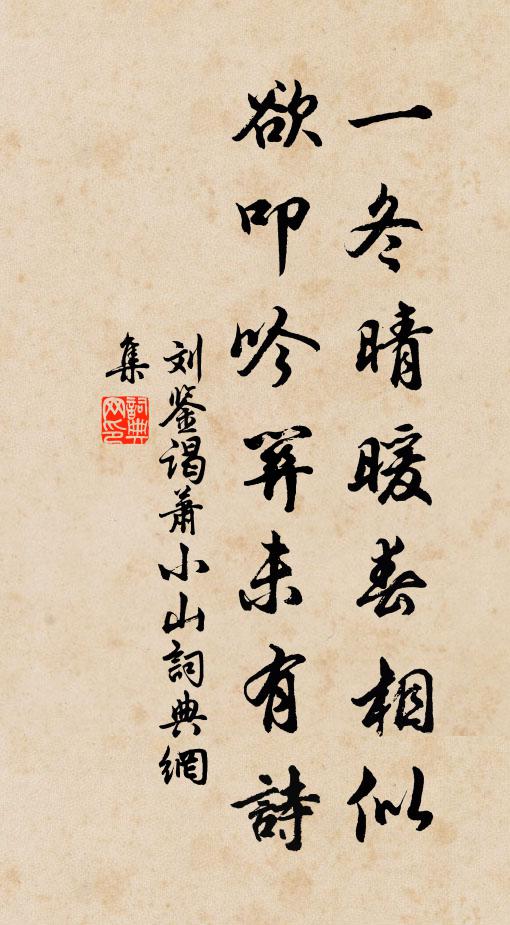 一冬晴暖春相似
欲叩吟关未有詩
刘鉴谒萧小山詞典網
集
詞典網印